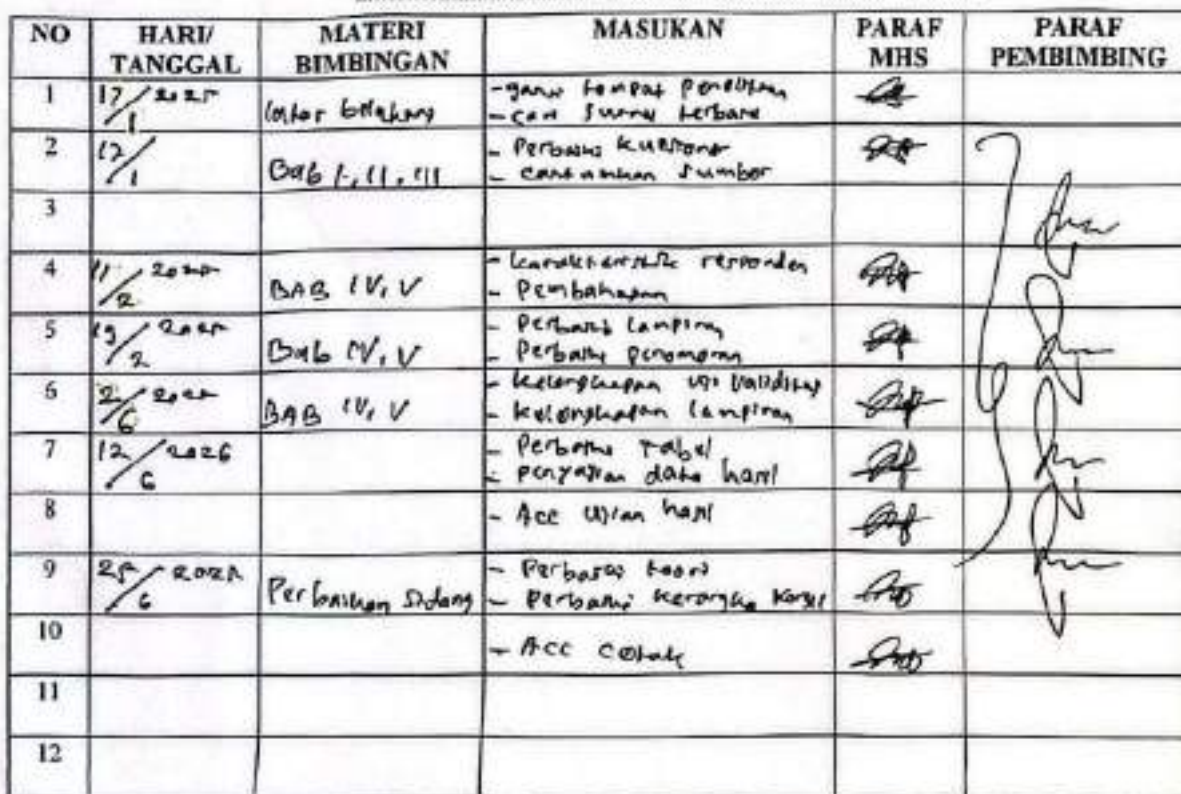 NO HARI/ TANGGAL MATERI BIMBINGAN MASUKAN PARAF MHS PARAF PEMBIMBING
1 17/1 2025 latar belakang - ganti tempat penelitian
- cari survei terbaru
2 17/1 Bab I, II, III - Perbaiki kuesioner
- cantumkan sumber
3
4 11/2 BAB IV, V - karakteristik responden
- Pembahasan
5 19/2 Bab IV, V - Perbaiki lampiran
- Perbaiki penomoran
6 2/6 BAB IV, V - kelengkapan uji validitas
- kelengkapan lampiran
7 12/6 2026 - Perbaiki tabel
- penyajian data hasil
8 - Acc ujian hasil
9 25/6 2025 Perbaikan Sidang - Perbaiki teori
- Perbaiki kerangka
10 - Acc cetak
11
12